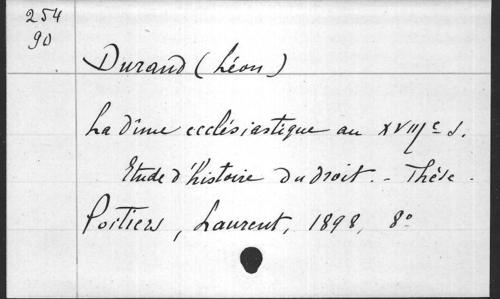 254
90
Durand (Léon)
La dîme ecclésiastique au XVIIIe s.
Etude d'histoire du droit. - Thèse.
Poitiers, Laurent, 1898, 8°